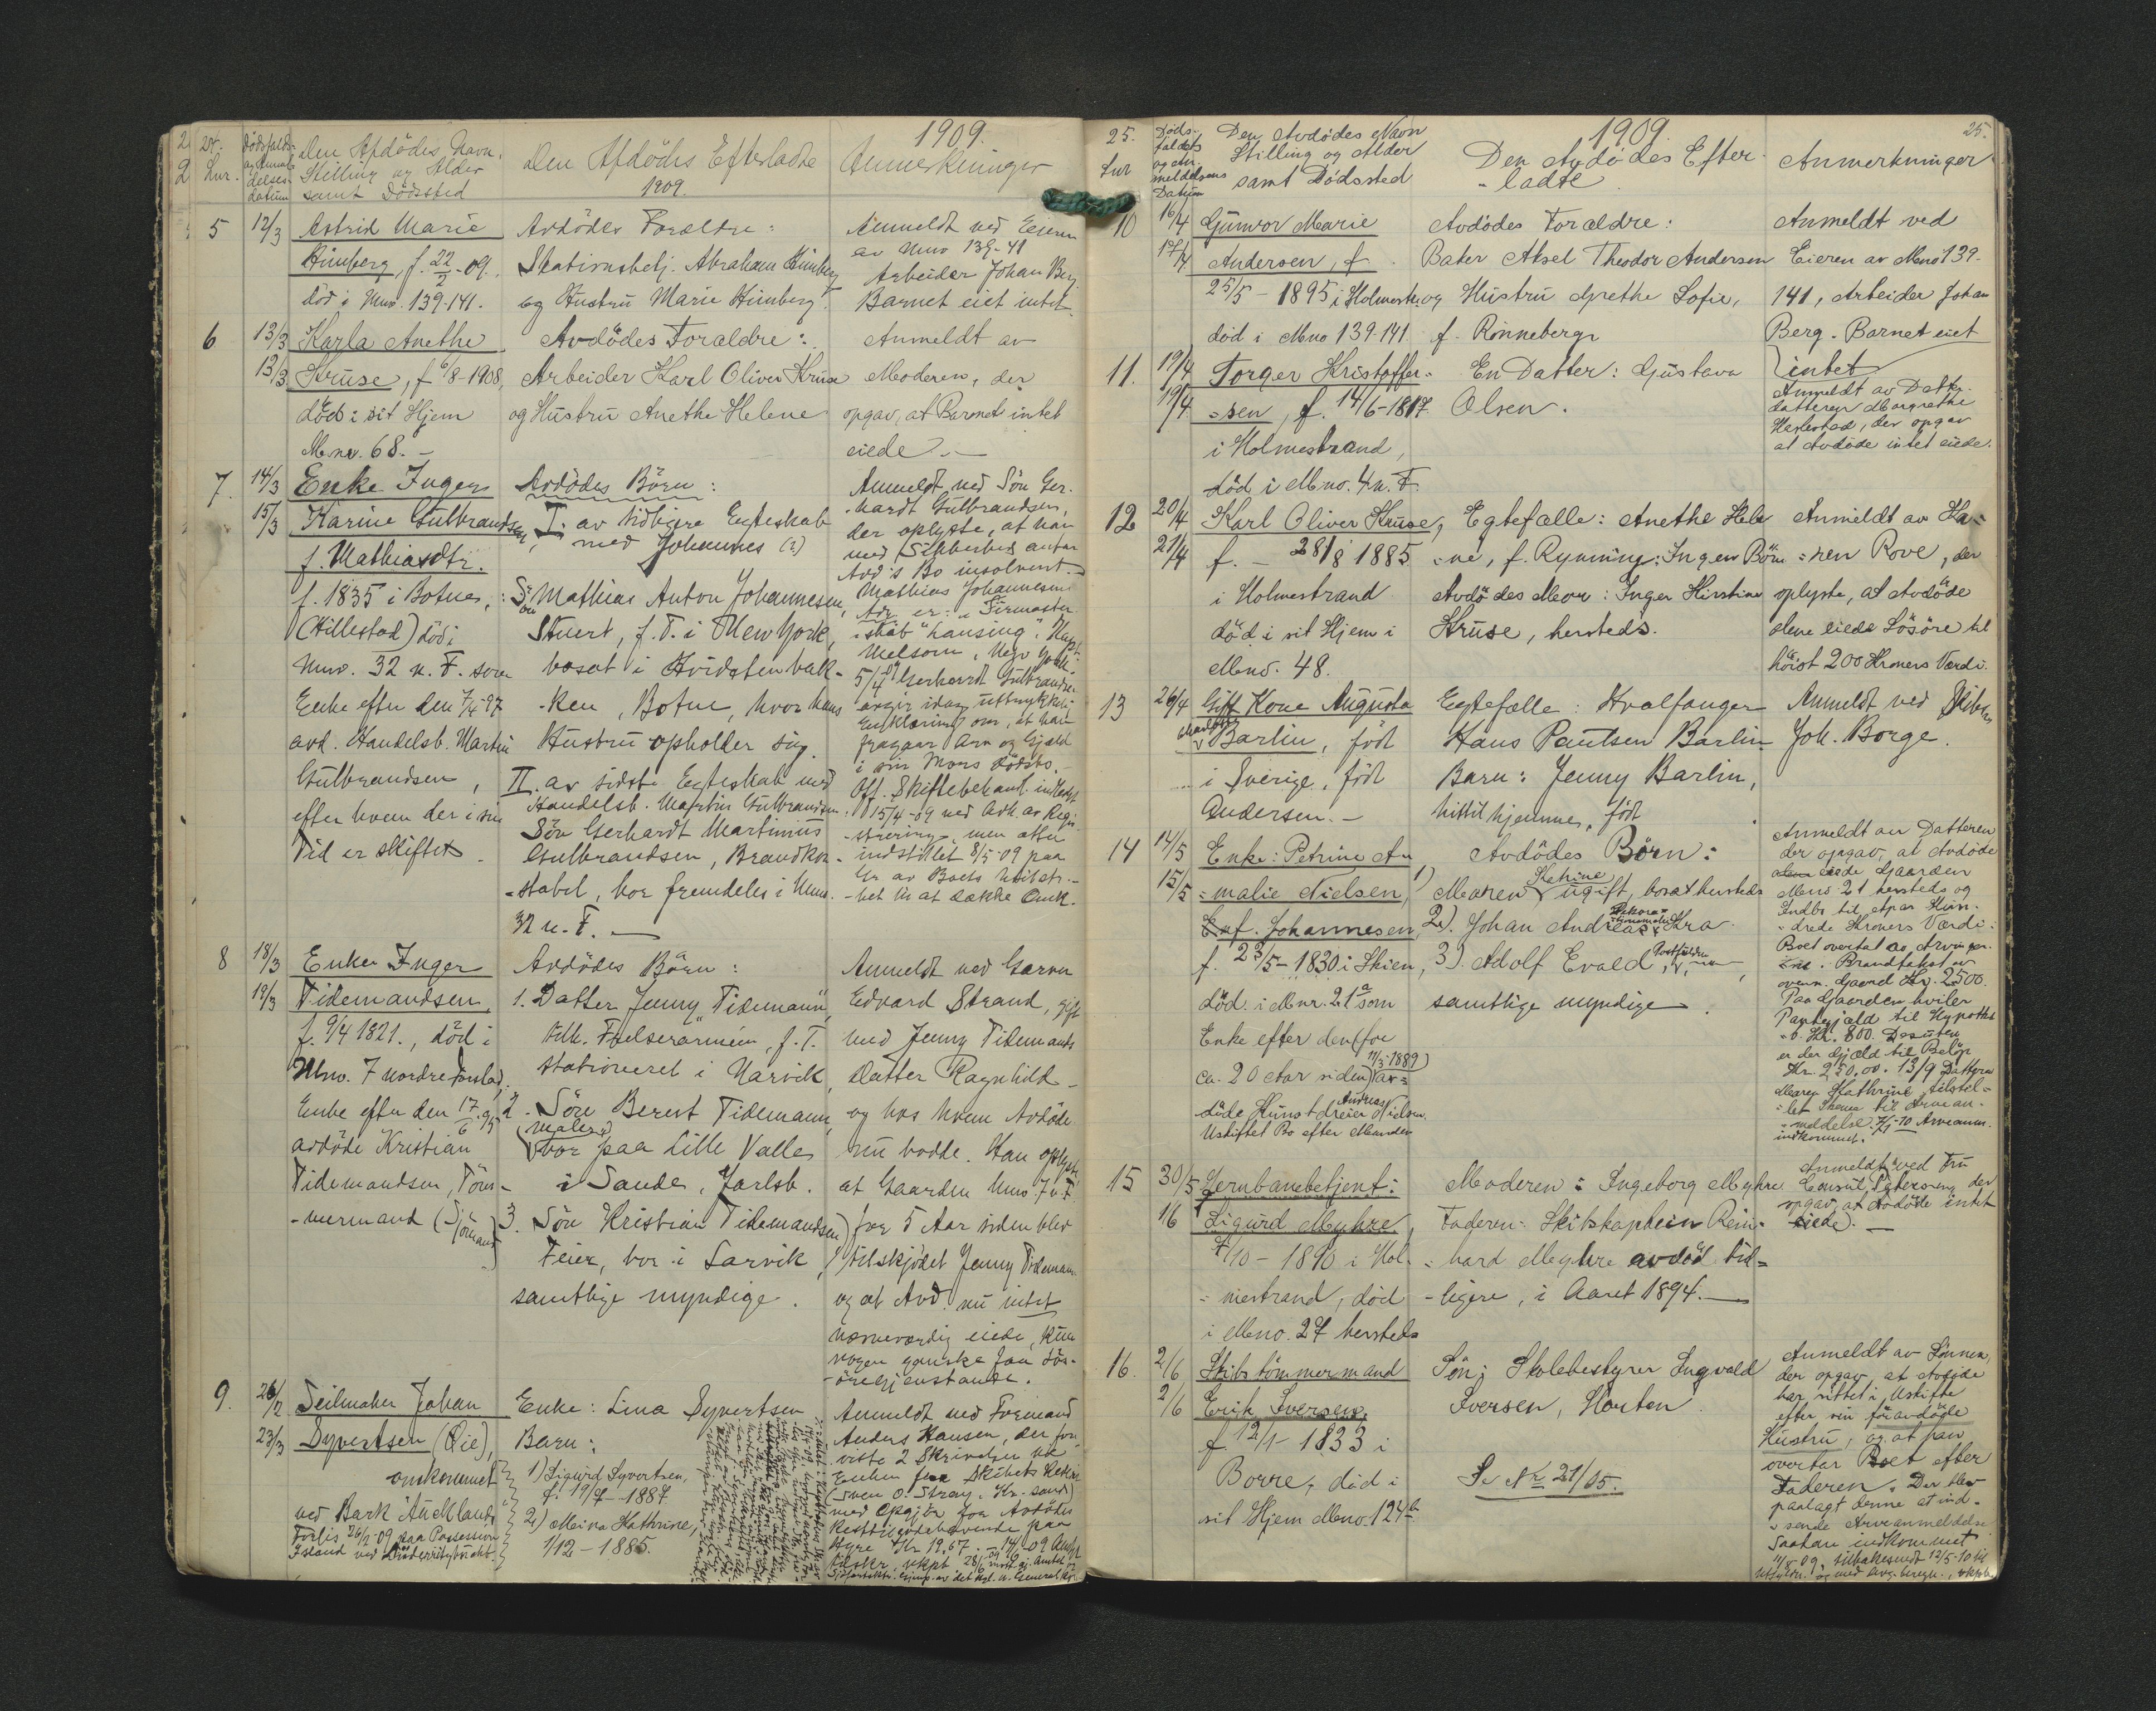 24.
Lnr.
Dödsfalds-
og Anmel-
delses-
datum
Den Afdödes Navn,
Stilling og Alder
samt Dödssted
Den Afdödes Efterladte
1909.
1909.
Anmerkninger
5
12/3
Astrid Marie
Himberg, f. 22/2-09.
död i Mnr. 139-141.
Avdödes Forældre:
Stationsbetj. Abraham Himberg
og Hustru Marie Himberg.
Anmeldt ved Eieren
av Mnr 139-41
Arbeider Johan Berg
Barnet eiet intet.
6
13/3
13/3
Karla Anethe
Kruse, f 6/8-1908,
död i sit Hjem
M.nr. 68. -
Avdödes Forældre:
Arbeider Karl Oliver Kruse
og Hustru Anethe Helene
Anmeldt av
Moderen, der
opgav, at Barnet intet
eiede. -
7.
14/3
15/3
Enke Inger
Karine Gulbrandsen,
f. Mathiasdtr.
f. 1835 i Botne,
(Hillestad) död i
Mnr. 32 n. F. som
Enke efter den 7/4 97
avd. Handelsb. Martin
Gulbrandsen,
efter hvem der i sin
Tid er skiftet.
Avdödes Börn:
I. av tidligere Egteskab
med Johannes (?)
Sön Mathias Anton Johannesen,
Stuert, f. T. i New York,
bosat i Hvidstenbak-
ken, Botne, hvor hans
Hustru opholder sig.
II. av sidste Egteskab med
Handelsb. Martin Gulbrandsen
Sön Gerhardt Martinius
Gulbrandsen, Brandkon-
stabel, bor fremdeles i Mnr.
32 n. F. -
Anmeldt ved Sön Ger-
hardt Gulbrandsen,
der oplyste, at han
med Sikkerhed antar
Avd's Bo insolvent. -
Mathias Johannesens
Adr er:
Melsom, New York
5/4 09 Gerhardt Gulbrandsen
avgir idag uttrykkelig
Erklæring om, at han
fragaar Arv og Gjæld
i sin Mors Dödsbo. -
Off. Skiftebehandl. indledet
15/4-09 ved Avh. av Regi-
strering, men atter
indstillet 8/5-09 paa
Gr. av Boets
het til at dække Omk.
8
18/3
19/3
Enken Inger
Tidemandsen,
f. 9/4 1821., död i
Mnr. 7 nordre Forstad,
Enke efter den 17/6 95
avdöde Kristian
Tidemandsen, Töm-
mermand (Sjömand)
Avdödes Börn:
1. Datter Jenny Tidemann,
tilh. Frelserarmeen, f. T.
stationeret i Narvik,
2. Sön Berent Tidemann,
(Maler)
bor paa Lille Valle
i Sande, Jarlsb.
3. Sön Kristian Tidemandsen
Feier, bor i Larvik,
samtlige myndige.
Anmeldt ved Garver
Edvard Strand, gift
med Jenny Tidemanns
Datter Ragnhild -
og hos hvem Avdöde
nu bodde. Han oplyste
at Gaarden Mnr. 7 n. F.
for 5 Aar siden blev
tilskjödet Jenny Tidemann
og at Avd. nu intet
nævneværdig eiede, kun
nogen ganske faa Lös-
öregjenstande.
9.
26/2
23/3
Seilmaker Johan
Syvertsen (Öie),
omkommet
ved Bark "Auckland's
Forlis 26/2-09 paa Possession
Island ved Lüderritzbucht.
Enke: Lina Syvertsen
Barn:
1) Sigurd Syvertsen,
f. 19/7-1887.
2) Meina Kathrine,
1/12-1885.
Anmeldt ved Formand
Anders Hansen, der fore-
viste 2 Skrivelser til
Enken fra Skibets Rederi
(Sven O. Stray, Kr.-sand)
med Opgjör for Avdödes
Resttilgodehavende paa
Hyre Kr 19,67. -
25.
Lnr
Döds-
faldets
og An-
meldelsens
Datum
Den Avdödes Navn
Stilling og Alder
samt Dödssted
1909.
Den Avdödes Efter-
ladte
Anmerkninger
25.
10
16/4
17/4
Gunvor Marie
Andersen, f.
25/5-1895 i Holmestr.
död i Mno 139-141
Avdödes Forældre:
Bater Aksel Theodor Andersen
og Hustru Grethe Sofie,
f. Rönneberg
Anmeldt ved
Eieren av Mno 139-
141, Arbeider Johan
Berg. Barnet eiet
intet
11.
19/4
19/4
Torger Kristoffer-
sen, f. 14/6-1817
i Holmestrand,
död i Mno. 4 n. F.
En Datter: Gustava
Olsen.
Anmeldt av Datter-
datteren Margrethe
der opgav
at Avdöde intet eiede.
12
20/4
21/4
Karl Oliver Kruse,
f. - 28/8 1885
i Holmestrand
död i sit Hjem i
Mno. 48.
Egtefælle: Anethe Hele-
ne, f. Rynning: Ingen Börn
Avdödes Mor: Inger Kirstine
Kruse, hersteds.
Anmeldt av Ha-
ren Rove, der
oplyste, at Avdöde
alene eiede Lösöre til
höist 200 Kroners Værdi.
13
26/4
Gift Kone Augusta
Barlin, född
i Sverige, född
Andersen. -
Egtefælle: Hvalfanger
Hans Paulsen Barlin
Barn: Jenny Barlin,
hittil hjemme, född
Anmeldt ved
Joh. Borge.
14
14/5
15/5
Enke: Petrine A
malie Nielsen,
f. Johannesen,
f. 23/5-1830 i Skien,
död i Mnr. 21 a som
Enke efter den (for
ca. 20 Aar siden) (11/3-1889) av-
döde Kunstdreier Andreas Nielsen.
Uskiftet Bo efter Manden
Avdödes Börn:
1) Maren Katrine ugift, bosat hersteds
2). Johan Andreas,
3). Adolf Evald,
samtlige myndige.
Anmeldt av Datteren
der opgav, at Avdöde
eiede Gaarden
Mno 21 hersteds og
Indbo til et par Hun-
drede Kroners Værdi.
Boet overtat av Arvinger-
ne. Brandtakst av
ovenn. Gaard Kr. 2500.
Paa Gaarden hviler
Pantegjæld til Hypothek-
b. Kr. 800. Desuten
er der Gjæld til Belöp
Kr. 250.00. 13/9 Datteren
Maren Kathrine tilstil-
let Skema til Arvean-
meldelse. 7/1-10 Arveanm.
indkommet.
15
30/5
16
Jernbanebetjent:
Sigurd Myhre,
4/10-1890 i Hol-
mestrand, död
i Mno. 27 hersteds
Moderen: Ingeborg Myhre
Faderen: Skibskaptein Rein-
hard Myhre avdöd tid-
ligere, i Aaret 1894. -
Anmeldt ved Fru
Consul der
opgav, at Avdöde intet
eiede. -
16.
2/6
2/6
Skibstömmermand
Erik Iversen,
f. 12/1-1833 i
Borre, död i
sit Hjem Mno. 124 b
Sön: Skolebestyrer Ingvald
Iversen, Horten.
Se Nr 21/05.
Anmeldt av Sönnen,
der opgav, at Avdöde
har sittet i Uskifte
efter sin föravdöde
Hustru, og at han
overtar Boet efter
Faderen. Der blev
paalagt denne at ind-
sende Arveanmeldelse.
Saadan indkommet
11/8-09, tilbakesendt 12/5-10 til